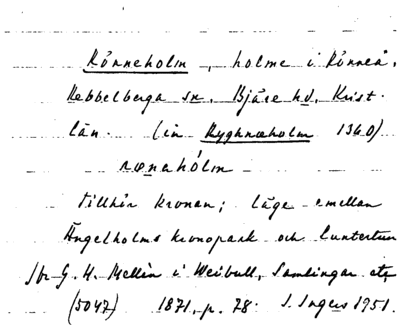 Rönneholm, holme i Rönneå,
Rebbelberga sn, Bjäre hd, Krist.
län. (in Ryghnæholm 1360)
rœnahólm
tillhör kronan; läge emellan
Ängelholms kronopark och Luntertun
/br G. H. Mellin i Weibull, Samlingar etc
(5047) 1871, p. 78. J. Ingers 1951.